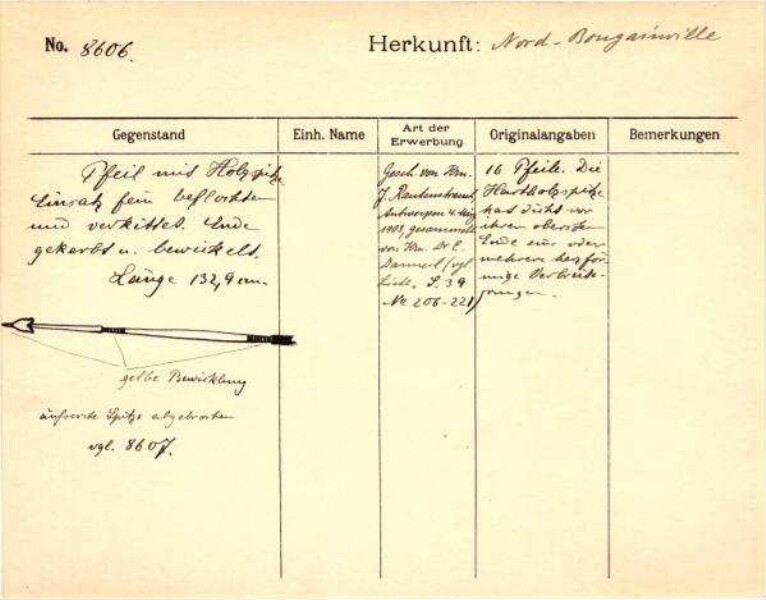 No. 8606.
Herkunft: Nord-Bougainville
Gegenstand
Einh. Name
Art der
Erwerbung
Originalangaben
Bemerkungen
Pfeil mit Holzspitze
Einsatz fein beflochten
und verkittet. Ende
gekerbt u. bewickelt.
Länge 132,9 cm.
gelbe Bewicklung
äußerste Spitze abgebrochen
vgl. 8607.
Gesch. von Hrn.
J. Rautenstrauch,
Antwerpen 4. Aug
1903, gesammelt
von Hrn. Dr. C.
Danneil (vgl.
Liste. S. 39
No 206-221)
16 Pfeile. Die
Hartholzspitze
hat dicht vor
ihrem obersten
Ende eine oder
mehrere herzför
mige Verbreite-
rungen.